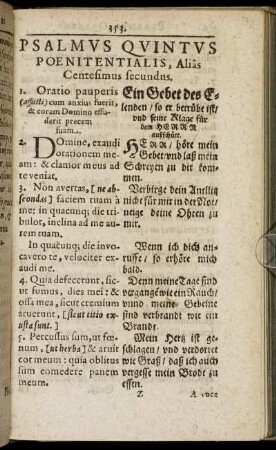 353.
PSALMVS QVINTVS
POENITENTIALIS, Aliàs
Centesimus secundus.
1. Oratio pauperis
(afflicti) cum anxius fuerit,
& coram Domino effu-
darit precem
suam.
2. Domine, exaudi
orationem me-
am: & clamor meus ad
te veniat.
3. Non avertas, [ne ab-
scondas] faciem tuam à
me: in quacunq; die tri-
bulor, inclina ad me au-
rem tuam.
In quacunq; die invo-
cavero te, velociter ex-
audi me.
4. Quia defecerunt, sic-
ut fumus, dies mei: &
ossa mea, sicut cremium
aruerunt, [sicut titio ex-
usta sunt.]
5. Percussus sum, ut foe-
num, [ut herba] & aruit
cor meum: quia oblitus
sum comedere panem
meum.
Ein Gebet des E-
lenden / so er betrübt ist /
vnd seine Klage für
dem HERRN
außschüt.
HErr / höre mein
Gebet / vnd laß mein
Schreyen zu dir kom-
men.
Verbirge dein Antlitz
nicht für mir in der Not /
neige deine Ohren zu
mir.
Wenn ich dich an-
ruffe / so erhöre mich
bald.
Denn meine Tage sind
vergangē wie ein Rauch /
vnnd meine Gebeine
sind verbrandt wie ein
Brandt.
Mein Hertz ist ge-
schlagen / vnd verdorret
wie Graß / daß ich auch
vergesse mein Brodt zu
essen.
Z
A voce